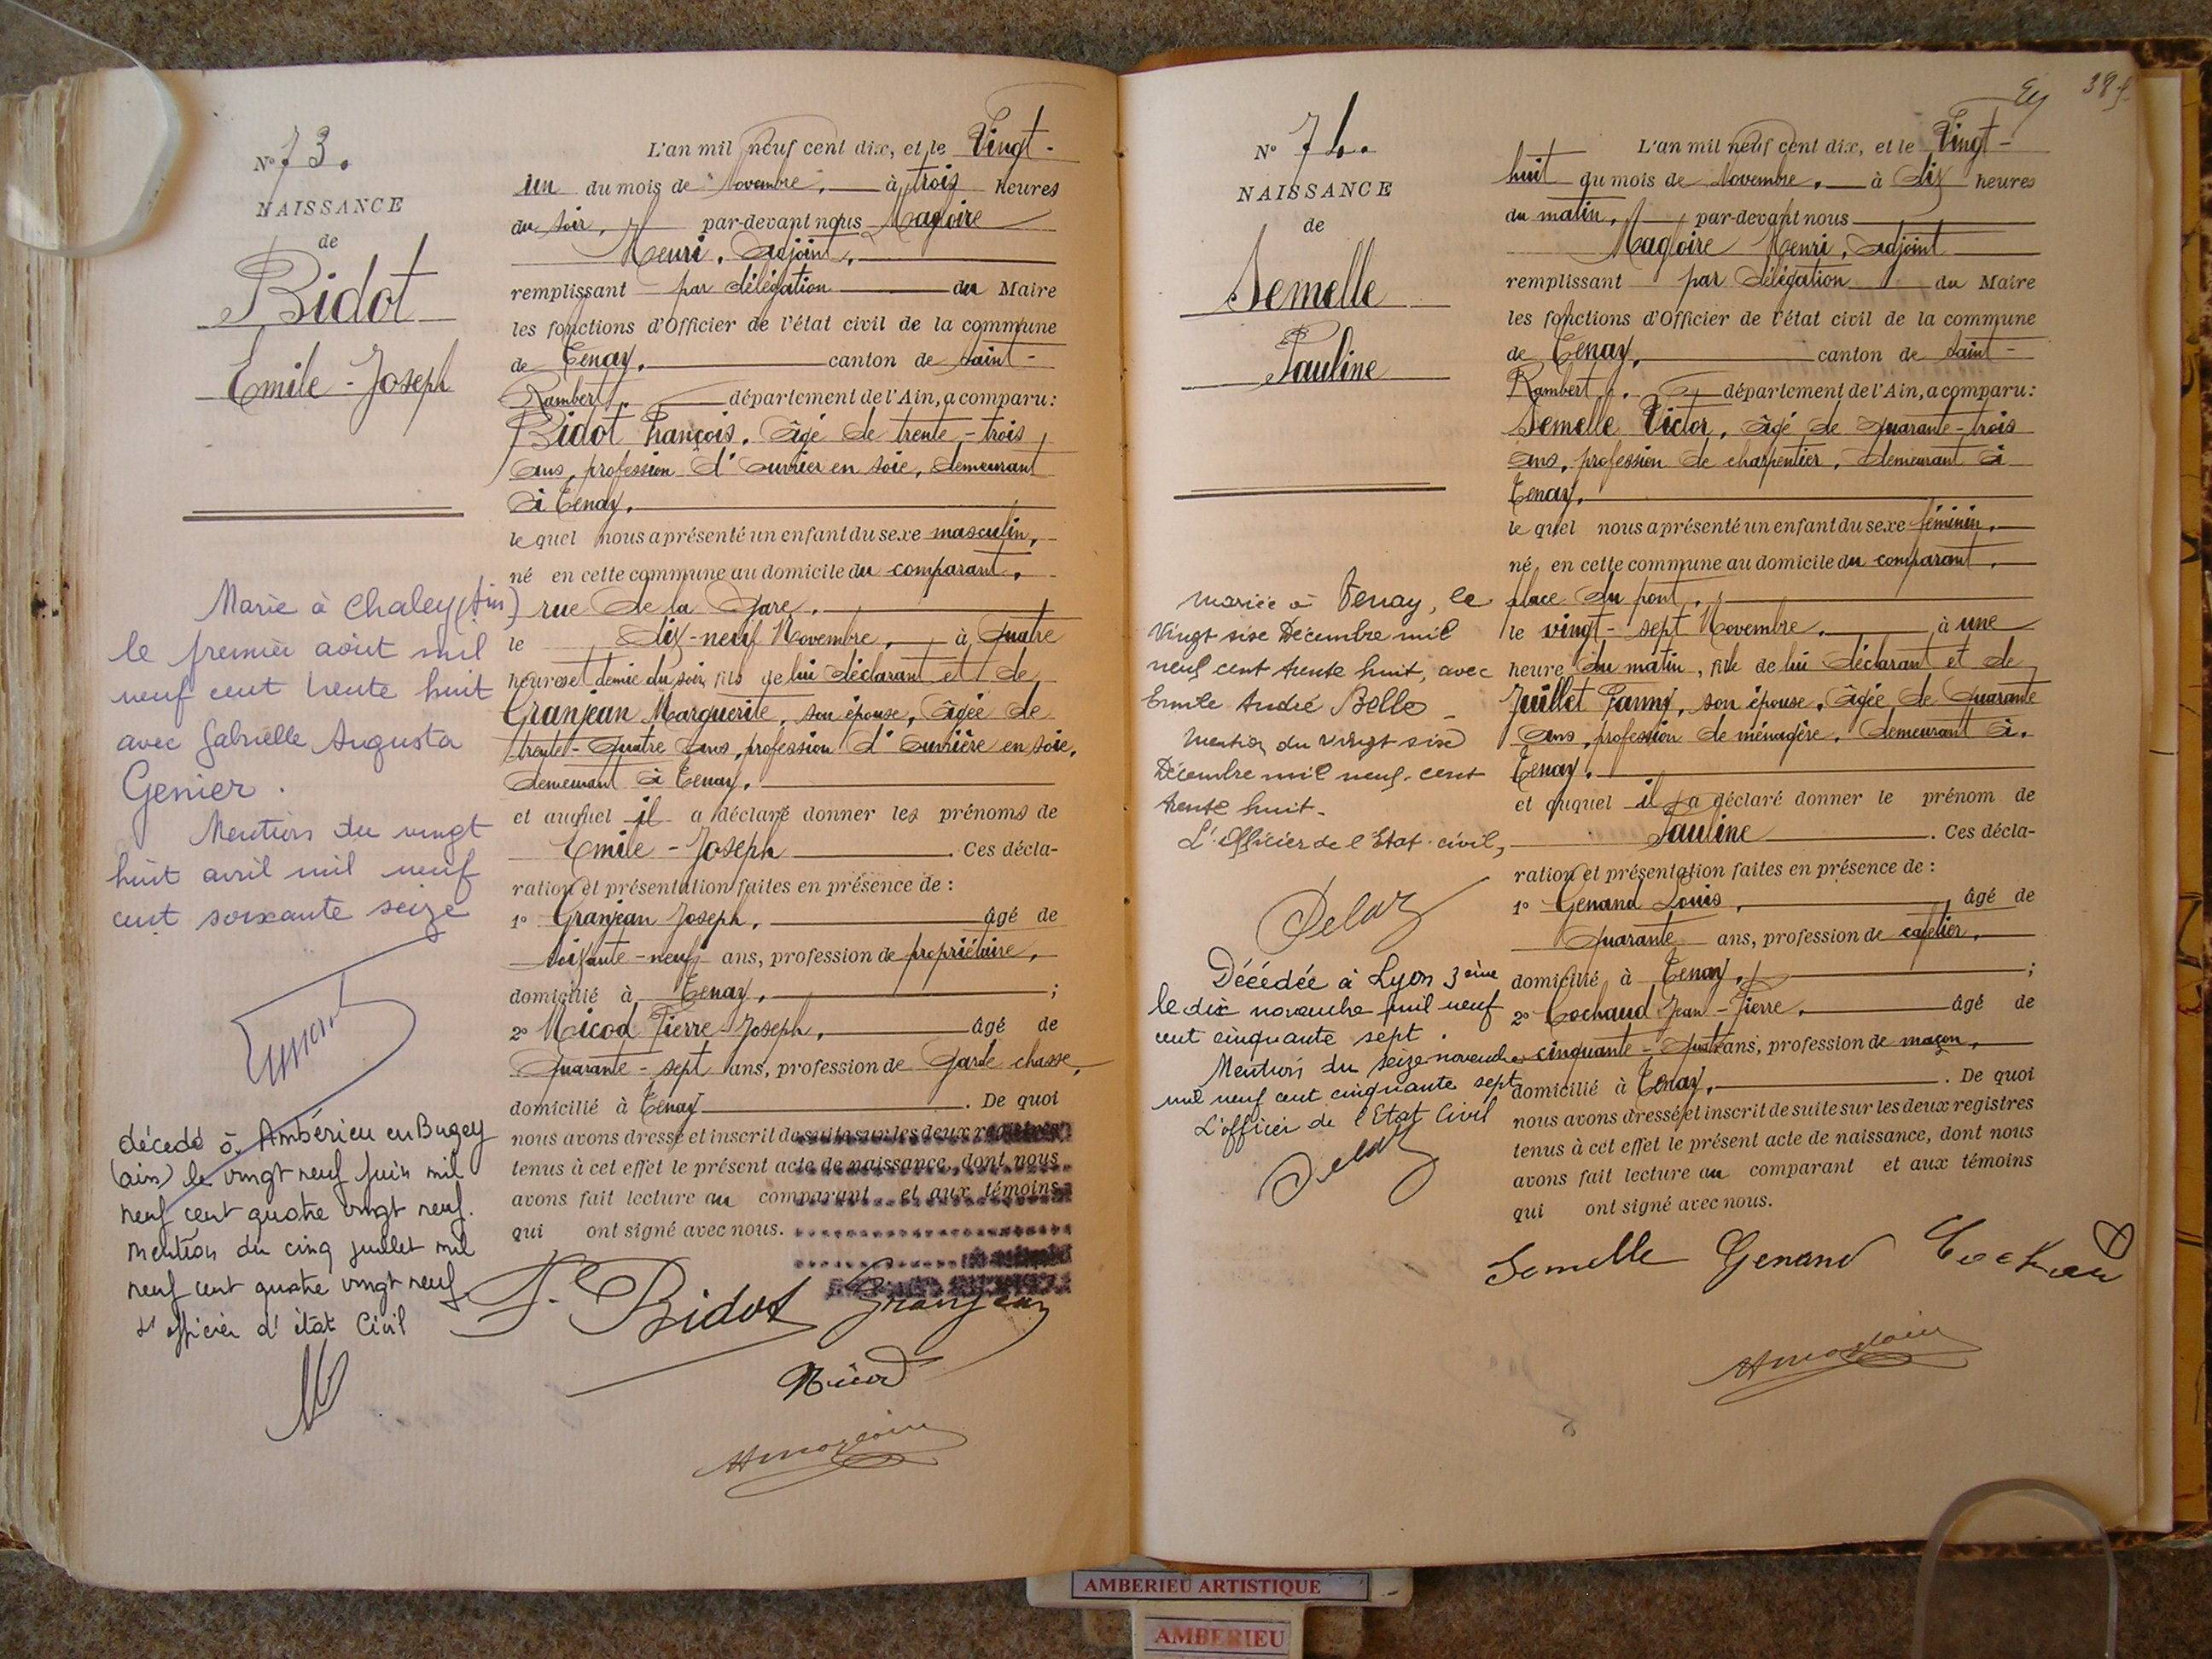 N° 73.
NAISSANCE
de
Bidot
Emile-Joseph
Marié à Chaley (Ain)
le premier août mil
neuf cent trente huit
avec Gabrielle Augusta
Genier.
Mention du vingt
huit avril mil neuf
cent soixante seize
décédé à Ambérieu en Bugey
(ain) le vingt neuf juin mil
neuf cent quatre vingt neuf.
Mention du cinq juillet mil
neuf cent quatre vingt neuf
L'officier d'état Civil
L'an mil neuf cent dix, et le Vingt-
un du mois de Novembre, à trois heures
du soir, par-devant nous Magloire
Henri, Adjoint,
remplissant par délégation du Maire
les fonctions d'Officier de l'état civil de la commune
de Tenay, canton de Saint-
Rambert, département de l'Ain, a comparu:
Bidot François, âgé de trente-trois
ans, profession d'ouvrier en soie, demeurant
à Tenay,
le quel nous a présenté un enfant du sexe masculin,
né en cette commune au domicile du comparant,
rue de la Gare,
le dix-neuf Novembre, à quatre
heures et demie du soir, fils de lui déclarant et de
Granjean Marguerite, son épouse, âgée de
trente-quatre ans, profession d'ouvrière en soie,
demeurant à Tenay,
et auquel il a déclaré donner les prénoms de
Emile-Joseph. Ces décla-
ration et présentation faites en présence de :
1° Granjean Joseph, âgé de
soixante-neuf ans, profession de propriétaire,
domicilié à Tenay, ;
2° Nicod Pierre-Joseph, âgé de
quarante-sept ans, profession de garde chasse,
domicilié à Tenay. De quoi
nous avons dressé et inscrit de suite sur les deux registres
tenus à cet effet le présent acte de naissance, dont nous
avons fait lecture au comparant et aux témoins
qui ont signé avec nous.
F. Bidot Granjean
Nicod
N° 74.
NAISSANCE
de
Semelle
Pauline
mariée à Tenay, le
Vingt sise Décembre mil
neuf cent trente huit, avec
Emile André Belle
Mention du vingt sise
Décembre mil neuf cent
trente huit.
L'Officier de l'Etat civil,
Décédée à Lyon 3ème
le dix novembre mil neuf
cent cinquante sept.
Mention du seize novembre
mil neuf cent cinquante sept
L'officier de l'Etat Civil
L'an mil neuf cent dix, et le Vingt-
huit du mois de Novembre, à dix heures
du matin, par-devant nous
Magloire Henri, Adjoint
remplissant par délégation du Maire
les fonctions d'Officier de l'état civil de la commune
de Tenay, canton de Saint-
Rambert, département de l'Ain, a comparu:
Semelle Victor, âgé de quarante-trois
ans, profession de charpentier, demeurant à
Tenay,
le quel nous a présenté un enfant du sexe féminin,
né en cette commune au domicile du comparant,
place du pont,
le vingt-sept Novembre, à une
heure du matin, fille de lui déclarant et de
Juillet Fanny, son épouse, âgée de quarante
ans, profession de ménagère, demeurant à
Tenay,
et auquel il a déclaré donner le prénom de
Pauline. Ces décla-
ration et présentation faites en présence de :
1° Genand Louis, âgé de
quarante ans, profession de cafetier,
domicilié à Tenay, ;
2° Cochaud Jean-Pierre, âgé de
cinquante-quatre ans, profession de maçon,
domicilié à Tenay. De quoi
nous avons dressé et inscrit de suite sur les deux registres
tenus à cet effet le présent acte de naissance, dont nous
avons fait lecture au comparant et aux témoins
qui ont signé avec nous.
Semelle Genand
AMBERIEU ARTISTIQUE
AMBERIEU